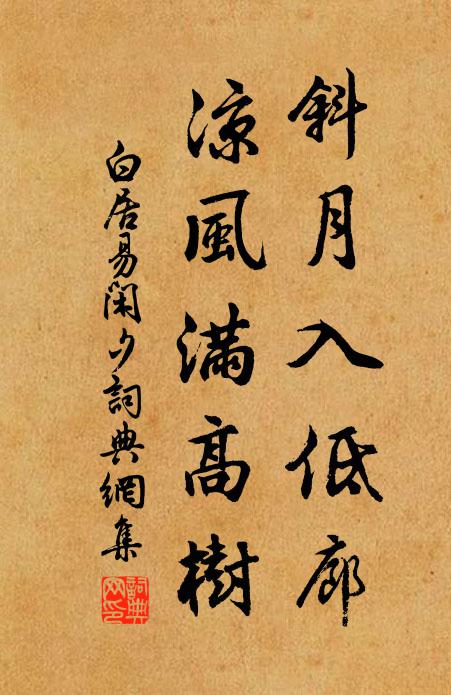 斜月入低廊
涼風滿高樹
白居易閑夕詞典網集
詞典网印